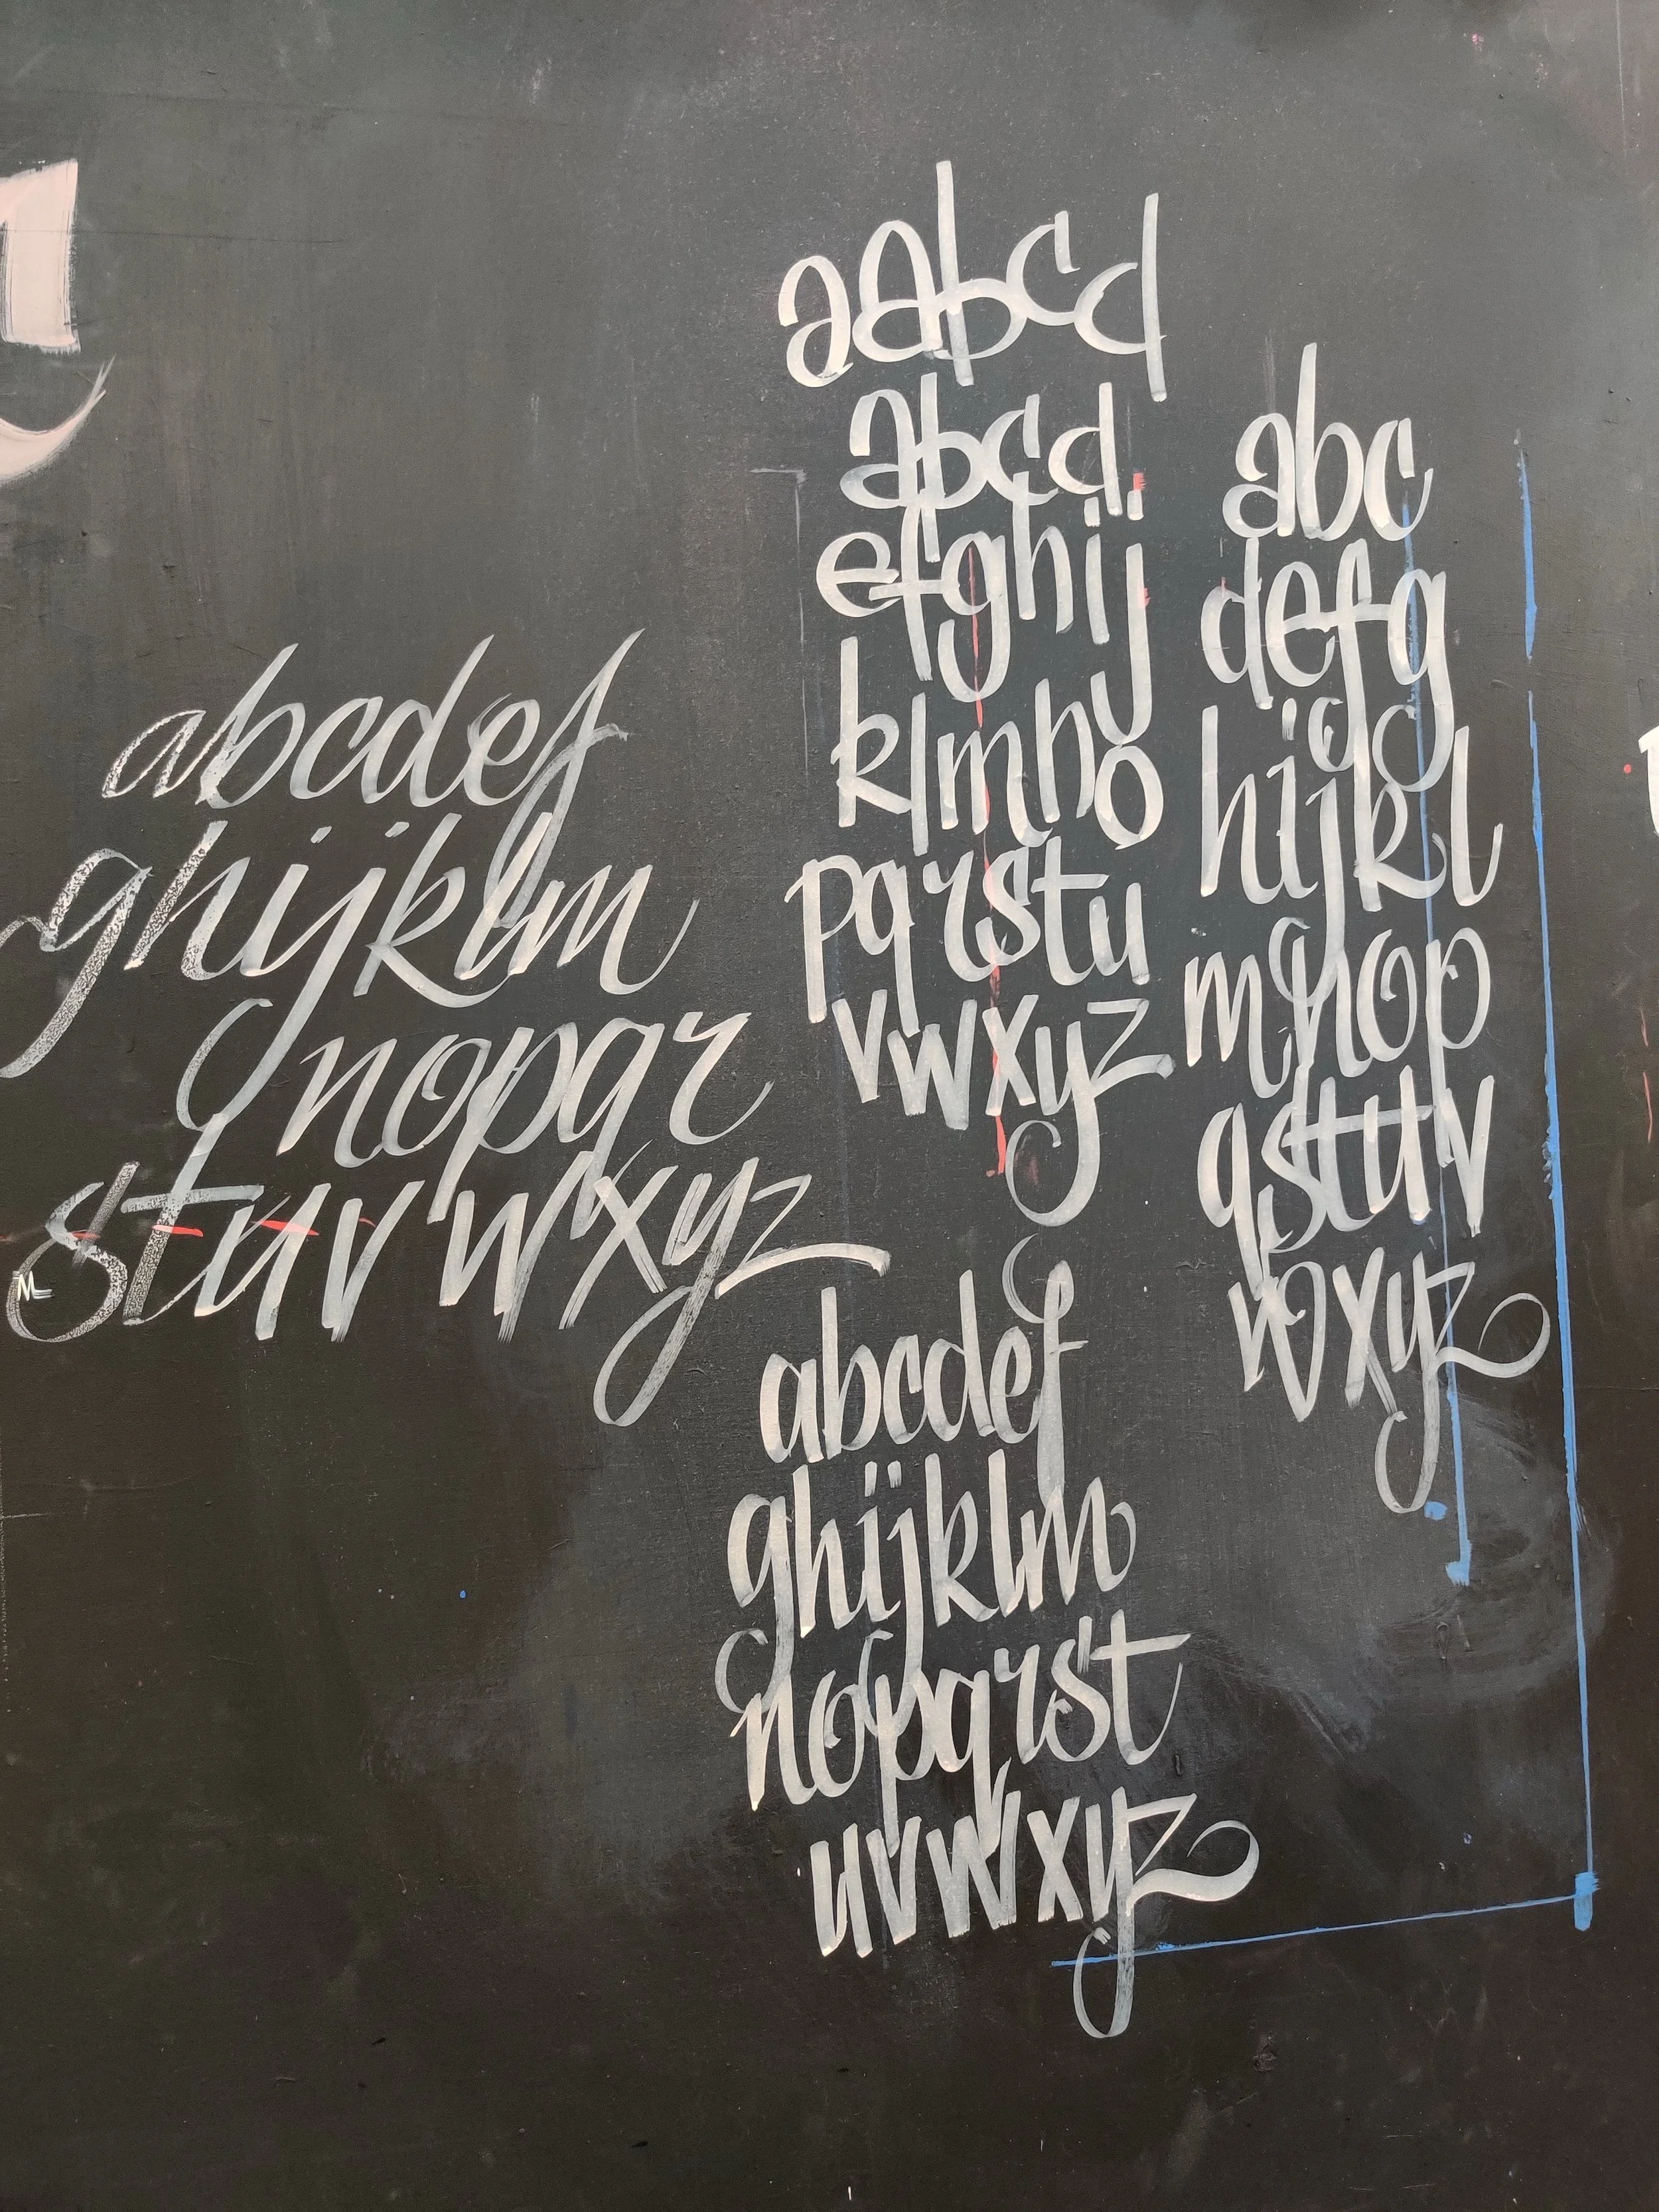 aabcd
abcd
efghij
klmno
pqrstu
vwxyz
abc
defg
hijkl
mnop
qstuv
wxyz
abcdef
ghijklm
nopqr
stuv wxyz
abcdef
ghijklm
nopqrst
uvwxyz